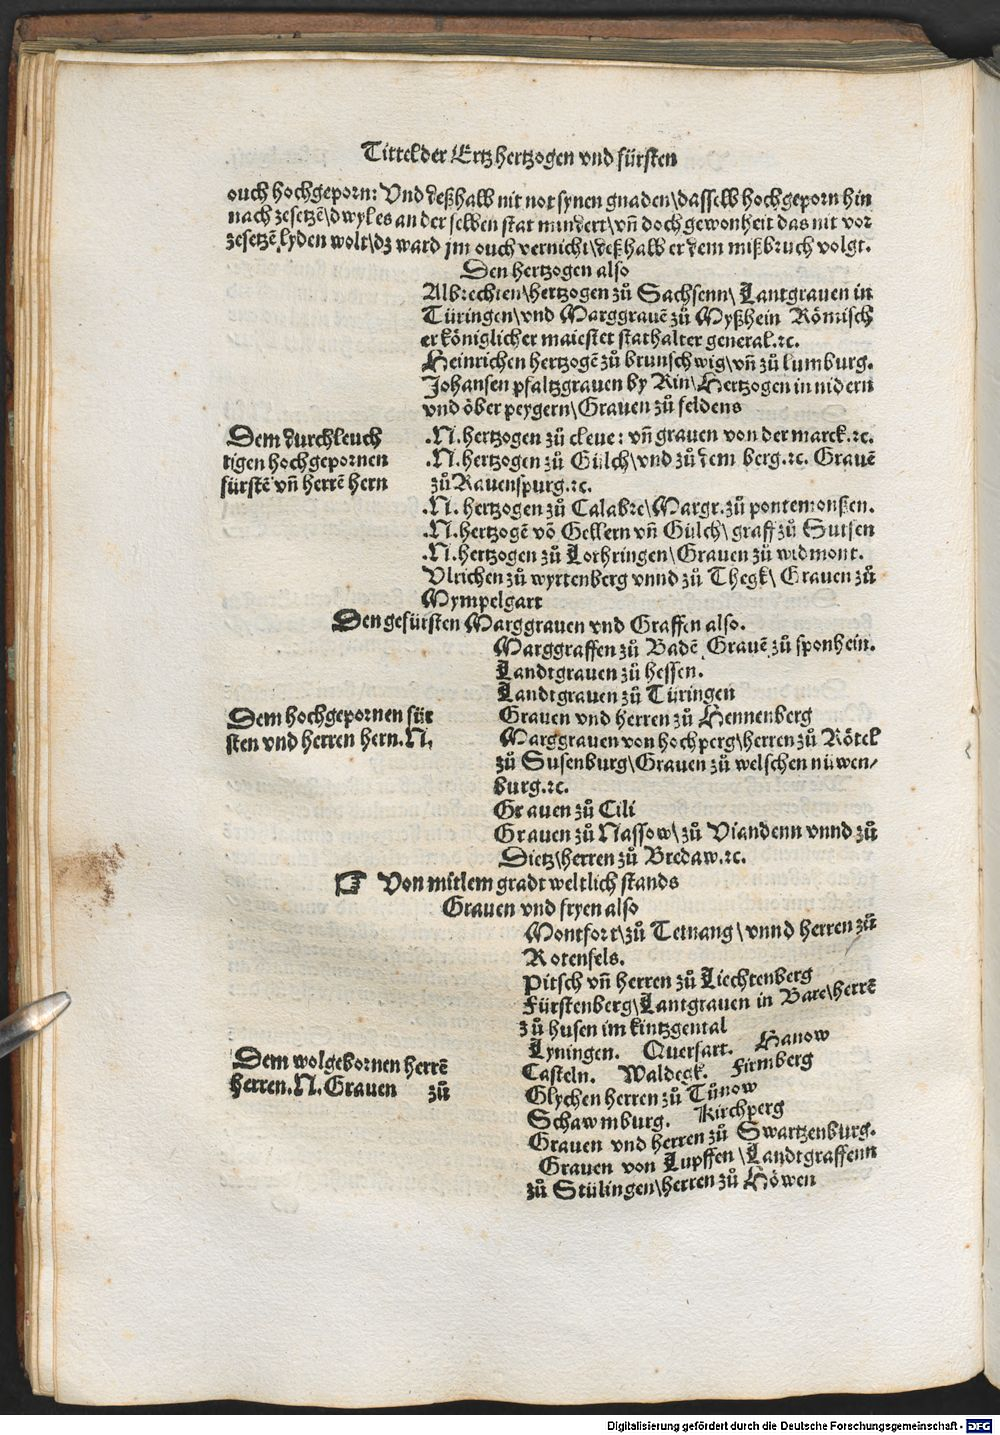 Tittel der Ertzhertzogen vnd fürsten
ouch hochgeporn: Vnd deßhalb nit not synen gnaden\dasselb hochgeporn hin
nach zesetzē\dwyl es an der selben stat mindert\vn̄ doch gewonheit das nit vor
zesetzē lyden wolt\dz ward jm ouch vernicht\deßhalb er dem mißbruch volgt.
Den hertzogen also
Albrechten\hertzogen zů Sachsenn\Lantgrauen in
Türingen\vnd Marggrauē zů Myßhein Römisch
er königlicher maiestet stathalter general.ꝛc.
Heinrichen hertzogē zů brunschwig\vn̄ zů lumburg.
Johansen pfaltzgrauen by Rin\Hertzogen in nidern
vnd öber peygern\Grauen zů feldens
Dem durchleuch
tigen hochgepornen
fürstē vn̄ herrē hern
.N. hertzogen zů cleue: vn̄ grauen von der marck.ꝛc.
.N. hertzogen zů Gülch\vnd zů dem berg.ꝛc. Grauē
zů Rauenspurg.ꝛc.
.N. hertzogen zů Calabre\Margr. zů pontemonßen.
.N. hertzogē vō Gellern vn̄ Gülch\graff zů Sutsen
.N. hertzogen zů Lothringen\Grauen zů widmont.
Vlrichen zů wyrtenberg vnnd zů Thegk\Grauen zů
Mympelgart
Den gefürsten Marggrauen vnd Graffen also.
Marggraffen zů Badē Grauē zů sponhein.
Landtgrauen zů hessen.
Landtgrauen zů Türingen
Dem hochgepornen für
sten vnd herren hern.N.
Grauen vnd herren zů Hennenberg
Marggrauen von hochperg\herren zů Rötel
zů Susenburg\Grauen zů welschen nüwen/
burg.ꝛc.
Grauen zů Cili
Grauen zů Nassow\zů Viandenn vnnd zů
Dietz\herren zů Bredaw.ꝛc.
☞ Von mitlem gradt weltlich stands
Grauen vnd fryen also
Montfort\zů Tetnang\vnnd herren zů
Rotenfels.
Pitsch vn̄ herren zů Liechtenberg
Fürstenberg\Lantgrauen in Bare\herrē
zů husen im kintzgental
Dem wolgebornen herrē
herren.N. Grauen zů
Lyningen. Quersart. Hanow
Casteln. Waldegk. Firmberg
Glychen herren zů Tůnow
Schawmburg. Kirchperg
Grauen vnd herren zů Swartzenburg.
Grauen von Lupffen\Landtgraffenn
zů Stülingen\herren zů Höwen
Digitalisierung gefördert durch die Deutsche Forschungsgemeinschaft - DFG